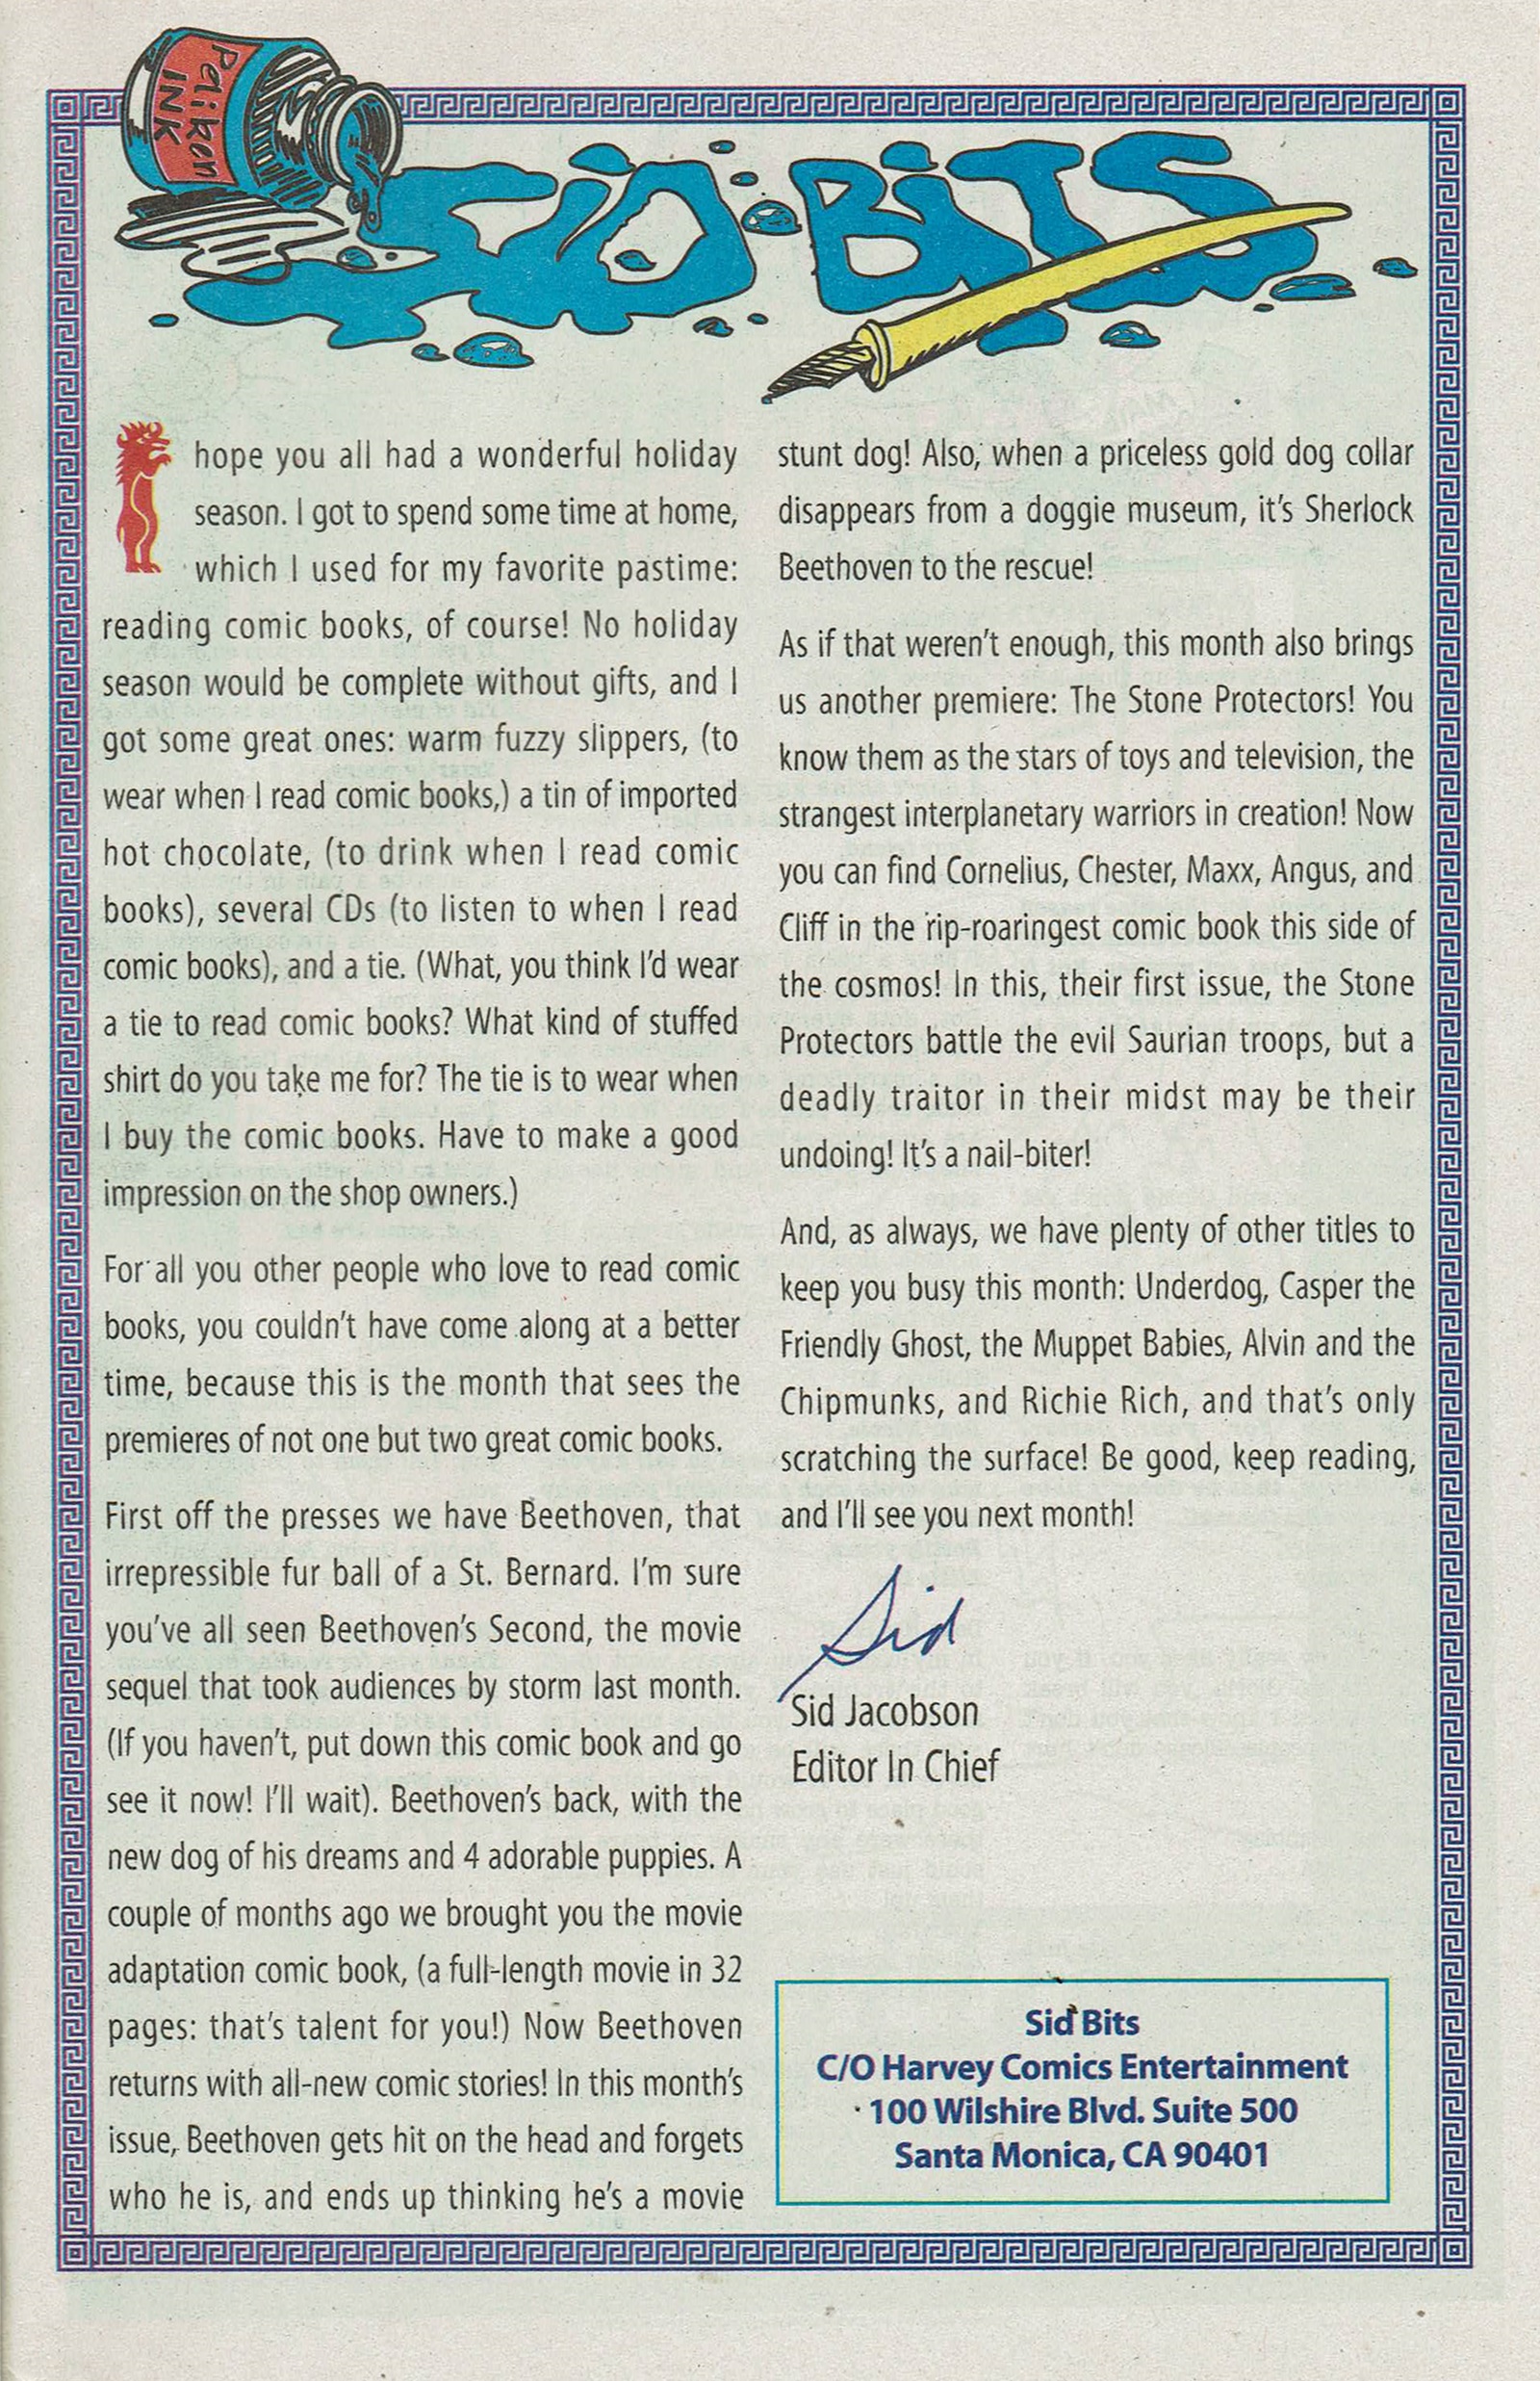 Pelikan
INK
SID BITS
I hope you all had a wonderful holiday
season. I got to spend some time at home,
which I used for my favorite pastime:
reading comic books, of course! No holiday
season would be complete without gifts, and I
got some great ones: warm fuzzy slippers, (to
wear when I read comic books,) a tin of imported
hot chocolate, (to drink when I read comic
books), several CDs (to listen to when I read
comic books), and a tie. (What, you think I'd wear
a tie to read comic books? What kind of stuffed
shirt do you take me for? The tie is to wear when
I buy the comic books. Have to make a good
impression on the shop owners.)
For all you other people who love to read comic
books, you couldn't have come along at a better
time, because this is the month that sees the
premieres of not one but two great comic books.
First off the presses we have Beethoven, that
irrepressible fur ball of a St. Bernard. I'm sure
you've all seen Beethoven's Second, the movie
sequel that took audiences by storm last month.
(If you haven't, put down this comic book and go
see it now! I'll wait). Beethoven's back, with the
new dog of his dreams and 4 adorable puppies. A
couple of months ago we brought you the movie
adaptation comic book, (a full-length movie in 32
pages: that's talent for you!) Now Beethoven
returns with all-new comic stories! In this month's
issue, Beethoven gets hit on the head and forgets
who he is, and ends up thinking he's a movie
stunt dog! Also, when a priceless gold dog collar
disappears from a doggie museum, it's Sherlock
Beethoven to the rescue!
As if that weren't enough, this month also brings
us another premiere: The Stone Protectors! You
know them as the stars of toys and television, the
strangest interplanetary warriors in creation! Now
you can find Cornelius, Chester, Maxx, Angus, and
Cliff in the rip-roaringest comic book this side of
the cosmos! In this, their first issue, the Stone
Protectors battle the evil Saurian troops, but a
deadly traitor in their midst may be their
undoing! It's a nail-biter!
And, as always, we have plenty of other titles to
keep you busy this month: Underdog, Casper the
Friendly Ghost, the Muppet Babies, Alvin and the
Chipmunks, and Richie Rich, and that's only
scratching the surface! Be good, keep reading,
and I'll see you next month!
Sid
Sid Jacobson
Editor In Chief
Sid Bits
C/O Harvey Comics Entertainment
100 Wilshire Blvd. Suite 500
Santa Monica, CA 90401